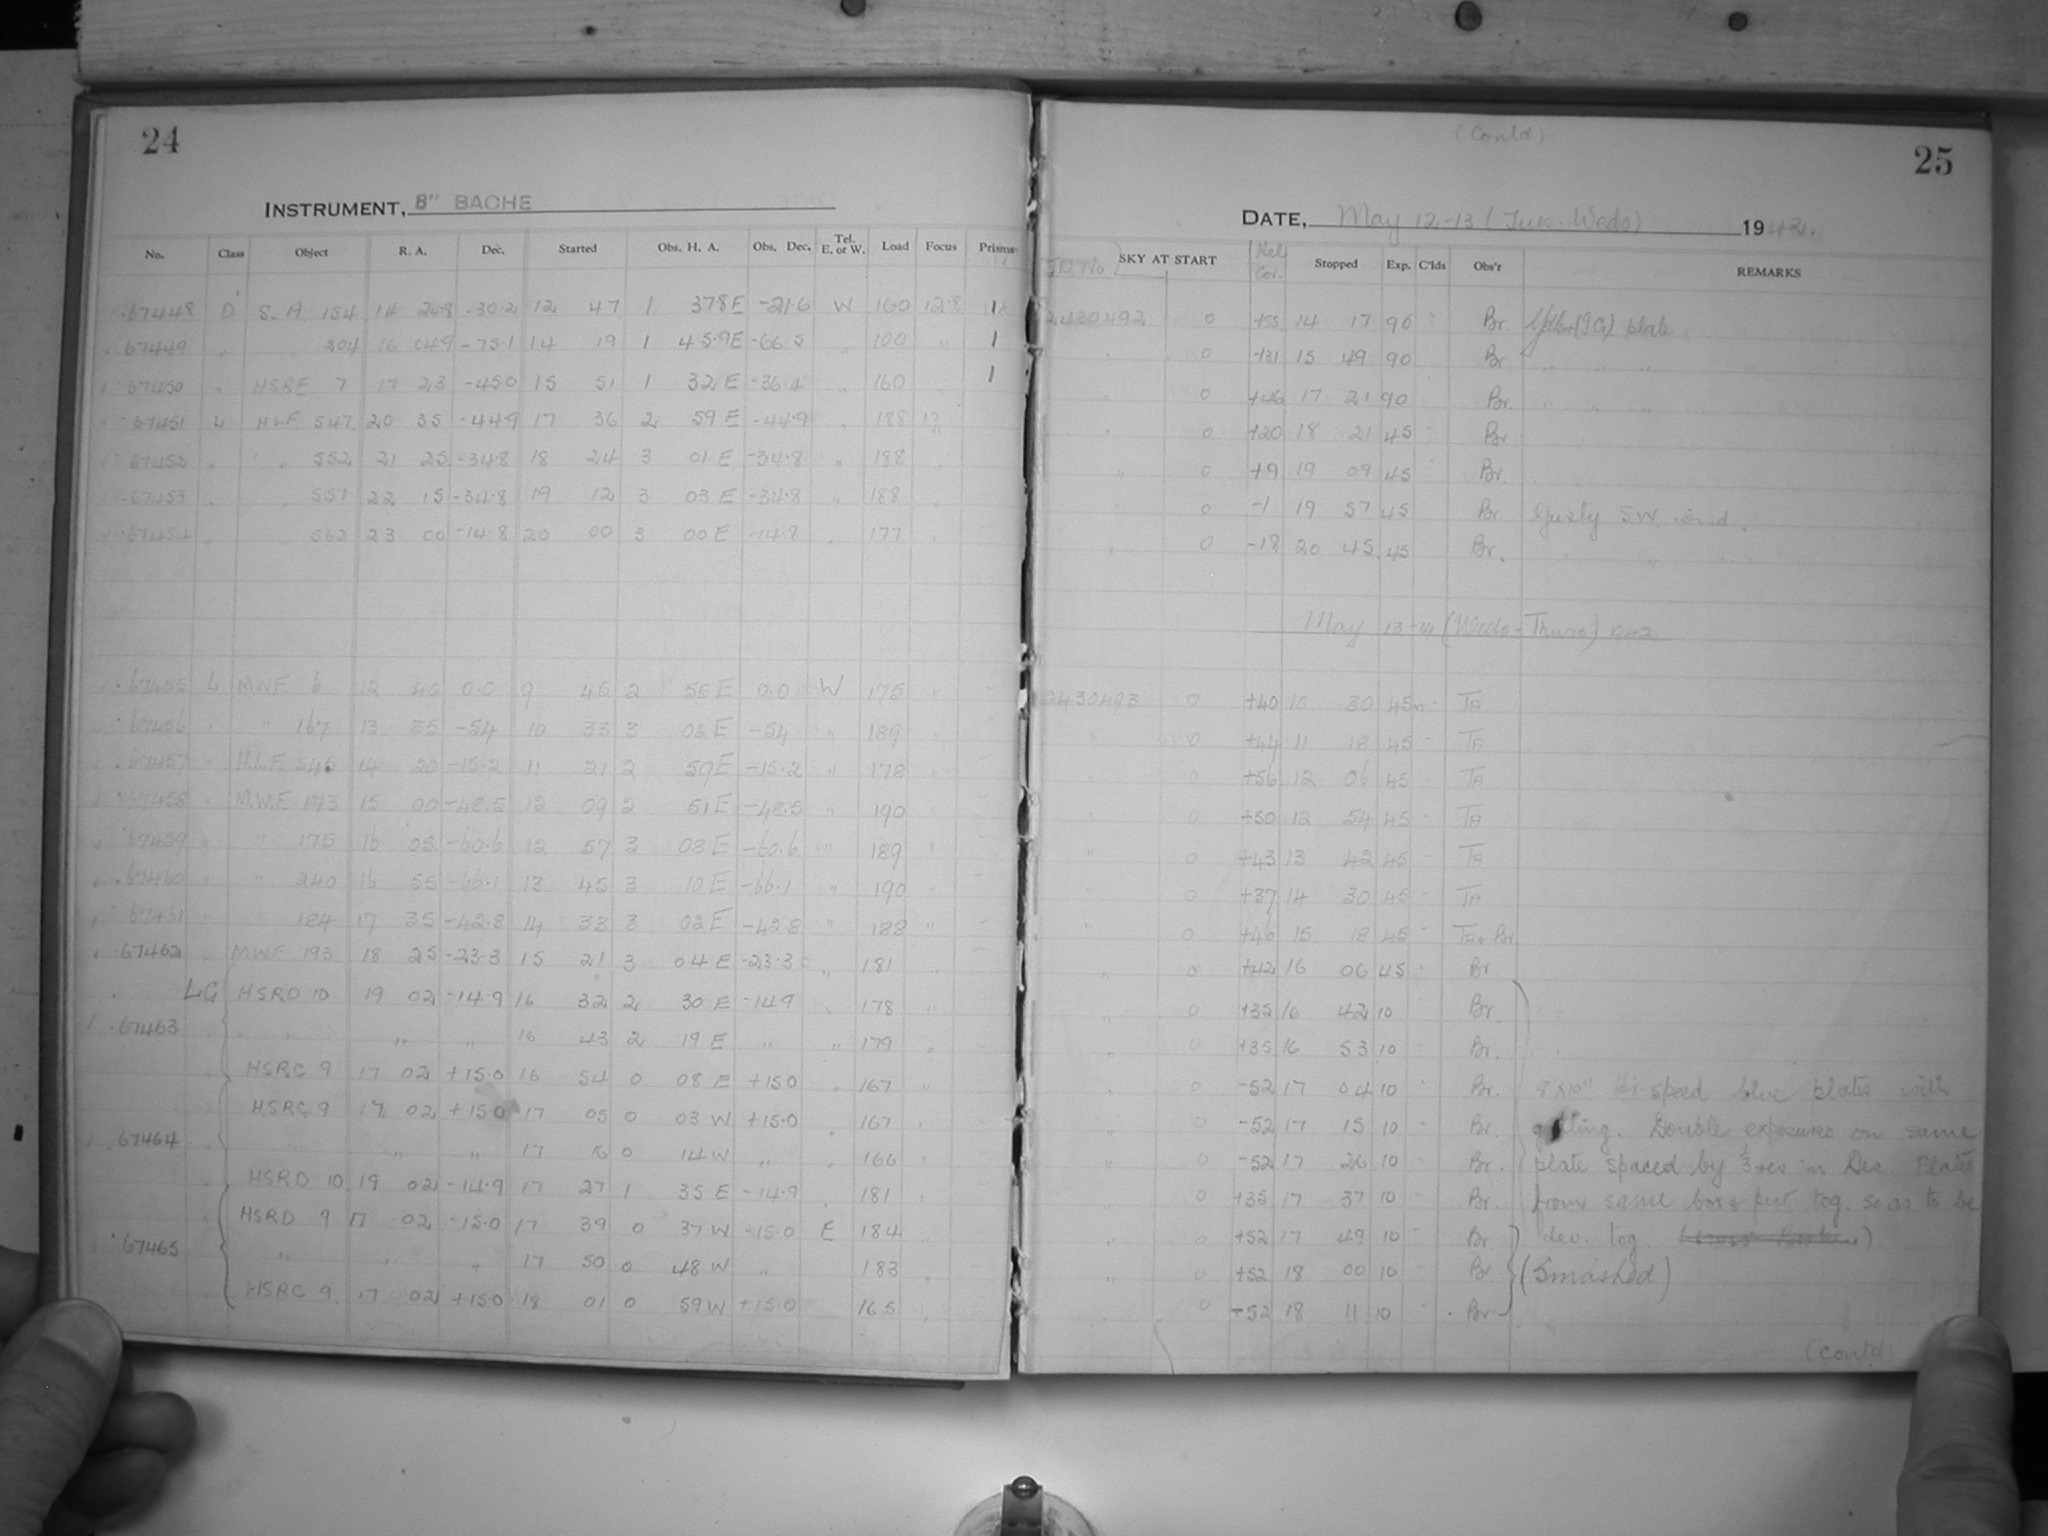 24
INSTRUMENT, 8" BACHE
No. Class Object R. A. Dec. Started Obs. H. A. Obs. Dec. Tel. E. or W. Load Focus Prisms
67448 D S.A 154 14 24.8 -30.2 12 47 1 37.8 E -21.6 W 160 12.8 1
67449 " " 204 16 04.9 -75.1 14 19 1 45.9E -66.5 " 160 " 1
67450 " HSRE 7 17 23 -45.0 15 51 1 32 E -36.4 " 160 1
67451 L HLF 547 20 35 -44.9 17 36 2 59 E -44.9 " 188
67452 " " " 552 21 25 -34.8 18 24 3 01 E -34.8 " 188
67453 " " 557 22 15 -34.8 19 12 3 03 E -34.8 " 188
67454 " 562 23 00 -14.8 20 00 3 00 E -14.8 " 177
67455 L M.W.F. 6 12 40 0.0 9 45 2 55 E 0.0 W 175 "
67456 " " 167 13 35 -54 10 33 3 02 E -54 " 189
67457 " H.L.F. 545 14 20 -15.2 11 21 2 59 E -15.2 " 178
67458 " M.W.F. 173 15 00 -48.5 12 09 2 51 E -48.5 " 190
67459 " " 175 16 05 -60.6 12 57 3 08 E -60.6 " 189
67460 " " 240 16 55 -66.1 13 45 3 10 E -66.1 " 190
67461 " 184 17 35 -42.8 14 33 3 02 E -42.8 " 188 "
67462 MWF 193 18 25 -23.3 15 21 3 04 E -23.3 " 181
LG HSRD 10 19 02 -14.9 16 32 2 30 E -14.9 " 178 "
67463 " " " " 16 43 2 19 E " " 179 "
HSRC 9 17 02 +15.0 16 54 0 08 E +15.0 " 167 "
HSRC 9 17 02 +15.0 17 05 0 03 W +15.0 " 167
67464 " " " 17 16 0 14 W " " 166
HSRD 10 19 02 -14.9 17 27 1 35 E -14.9 " 181
HSRD 9 17 02 -15.0 17 39 0 37 W -15.0 E 184
67465 " " " 17 50 0 48 W " 183
HSRC 9 17 02 +15.0 18 01 0 59 W +15.0 165
(Contd)
25
DATE, May 12-13 (Tues-Weds) 1942.
J.D. No. SKY AT START Hel Cor. Stopped Exp. C'lds Obs'r REMARKS
2430492 0 +55 14 17 90 Br. Yellow plate
" 0 +31 15 49 90 Br. " " "
" 0 +46 17 21 90 Br. " " "
" 0 +20 18 21 45 - Br
" 0 +9 19 09 45 Br.
0 -1 19 57 45 Br. Gusty S.W. wind.
" 0 -18 20 45 45 Br. " "
May 13-14 (Weds-Thurs) 1942
2430493 0 +40 10 30 45m - Ta
" 0 +44 11 18 45 - Ta
" 0 +56 12 06 45 Ta
" 0 +50 12 54 45 - Ta
" 0 +43 13 42 45 - Ta
" 0 +37 14 30 45 - Ta
" 0 +40 15 18 45 - Ta + Br.
" 0 +42 16 06 45 Br
" 0 +35 16 42 10 Br.
" 0 +35 16 53 10 - Br.
" 0 -52 17 04 10 - Br. 8x10" Hi-speed blue plates with
" 0 -52 17 15 10 - Br. Double exposures on same
" 0 -52 17 26 10 - Br. plate spaced by in Dec. Plates
" 0 +35 17 37 10 - Br. from same box & put tog. so as to be
" 0 +52 17 49 10 - Br. dev. tog.
" 0 +52 18 00 10 - Br. (Smashed)
" 0 +52 18 11 10 - Br.
(contd)